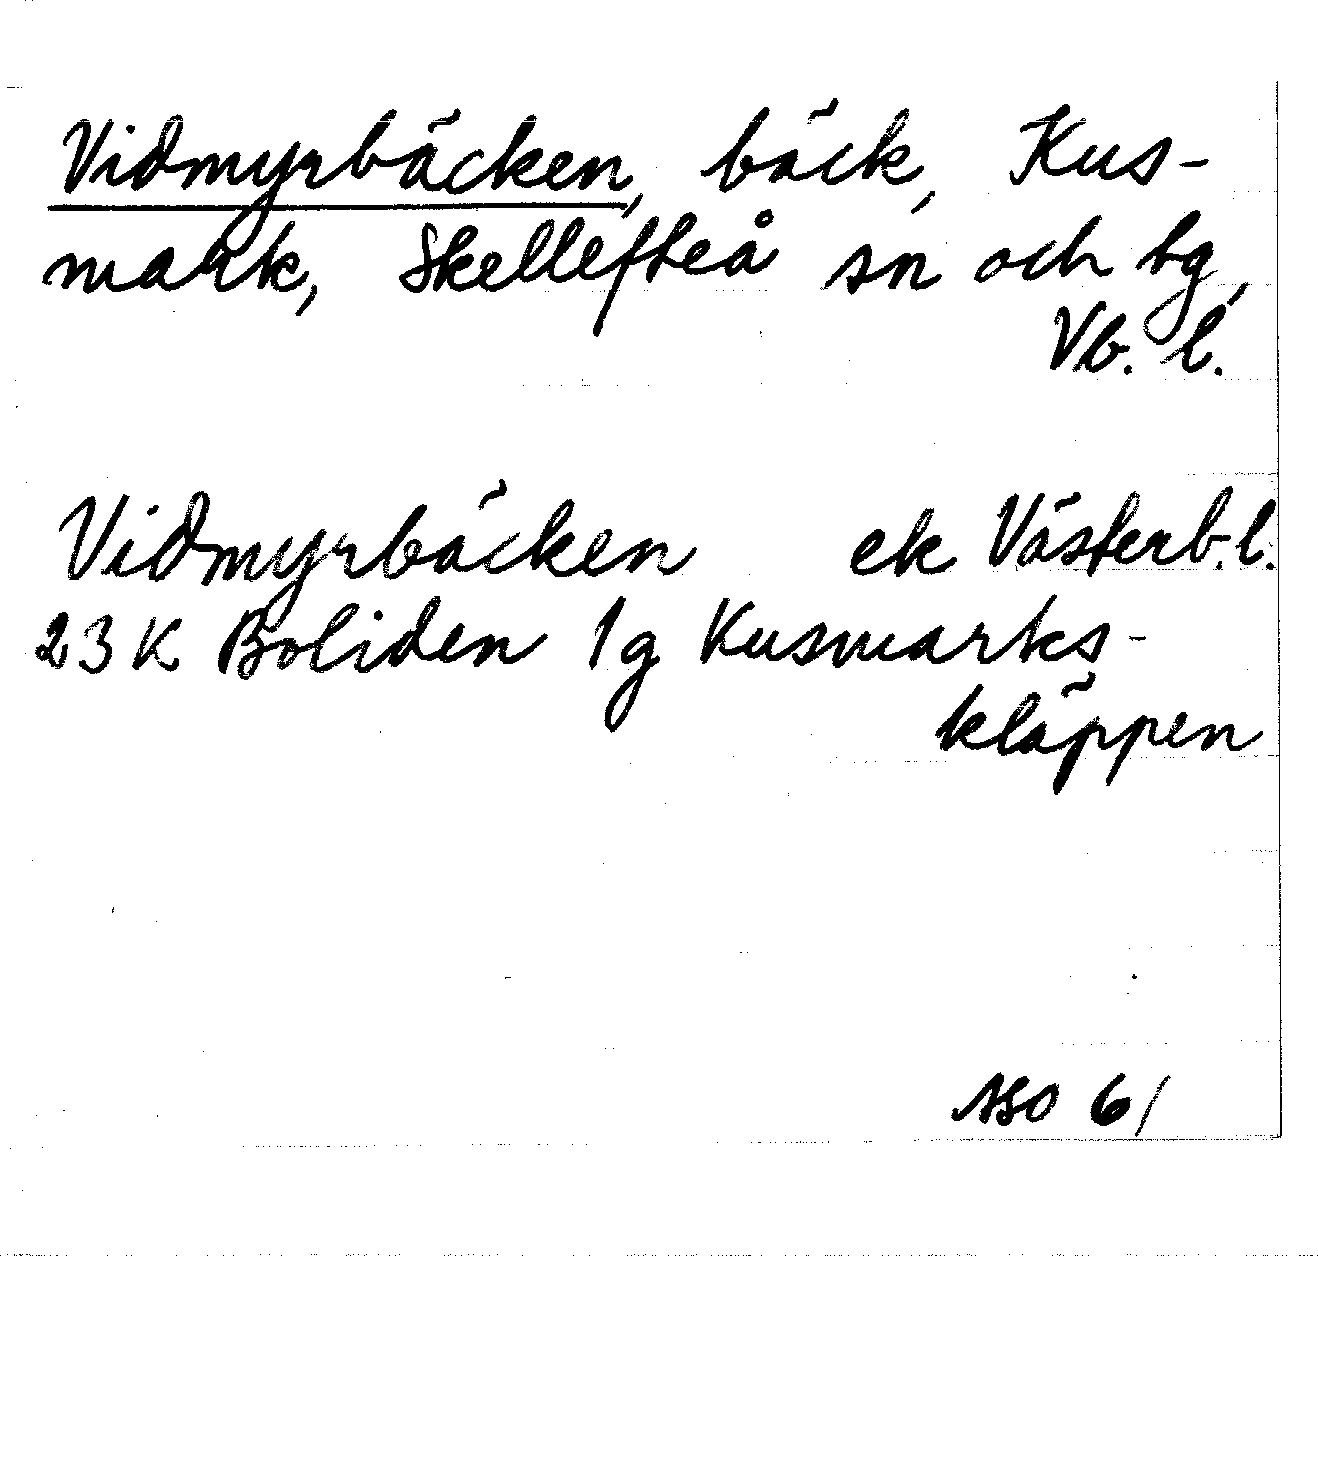 Vidmyrbäcken, bäck, Kus-
mark, Skellefteå sn och tg,
Vb. l.
Vidmyrbäcken ek Västerb.l.
23 K Boliden 1g Kusmarks-
kläppen